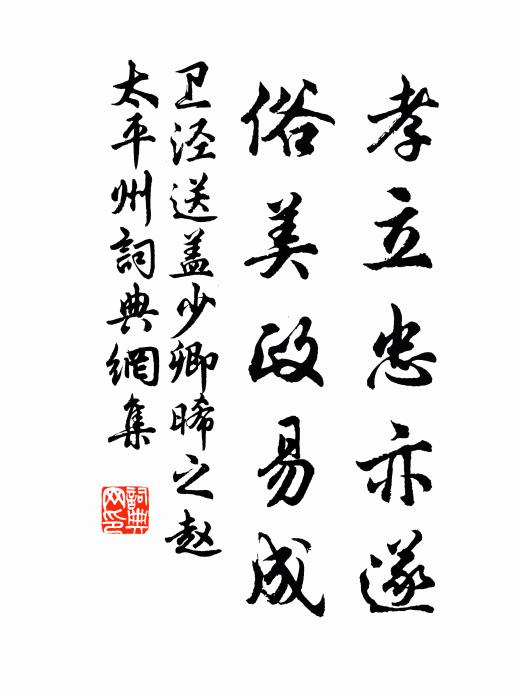 孝立忠亦遂
俗美政易成
卫泾送盖少卿晞之赵
太平州詞典網集
詞典
网印